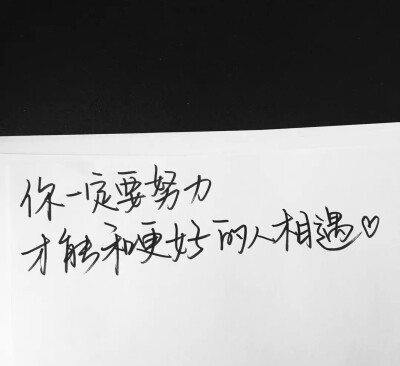 你一定要努力
才能和更好的人相遇♡